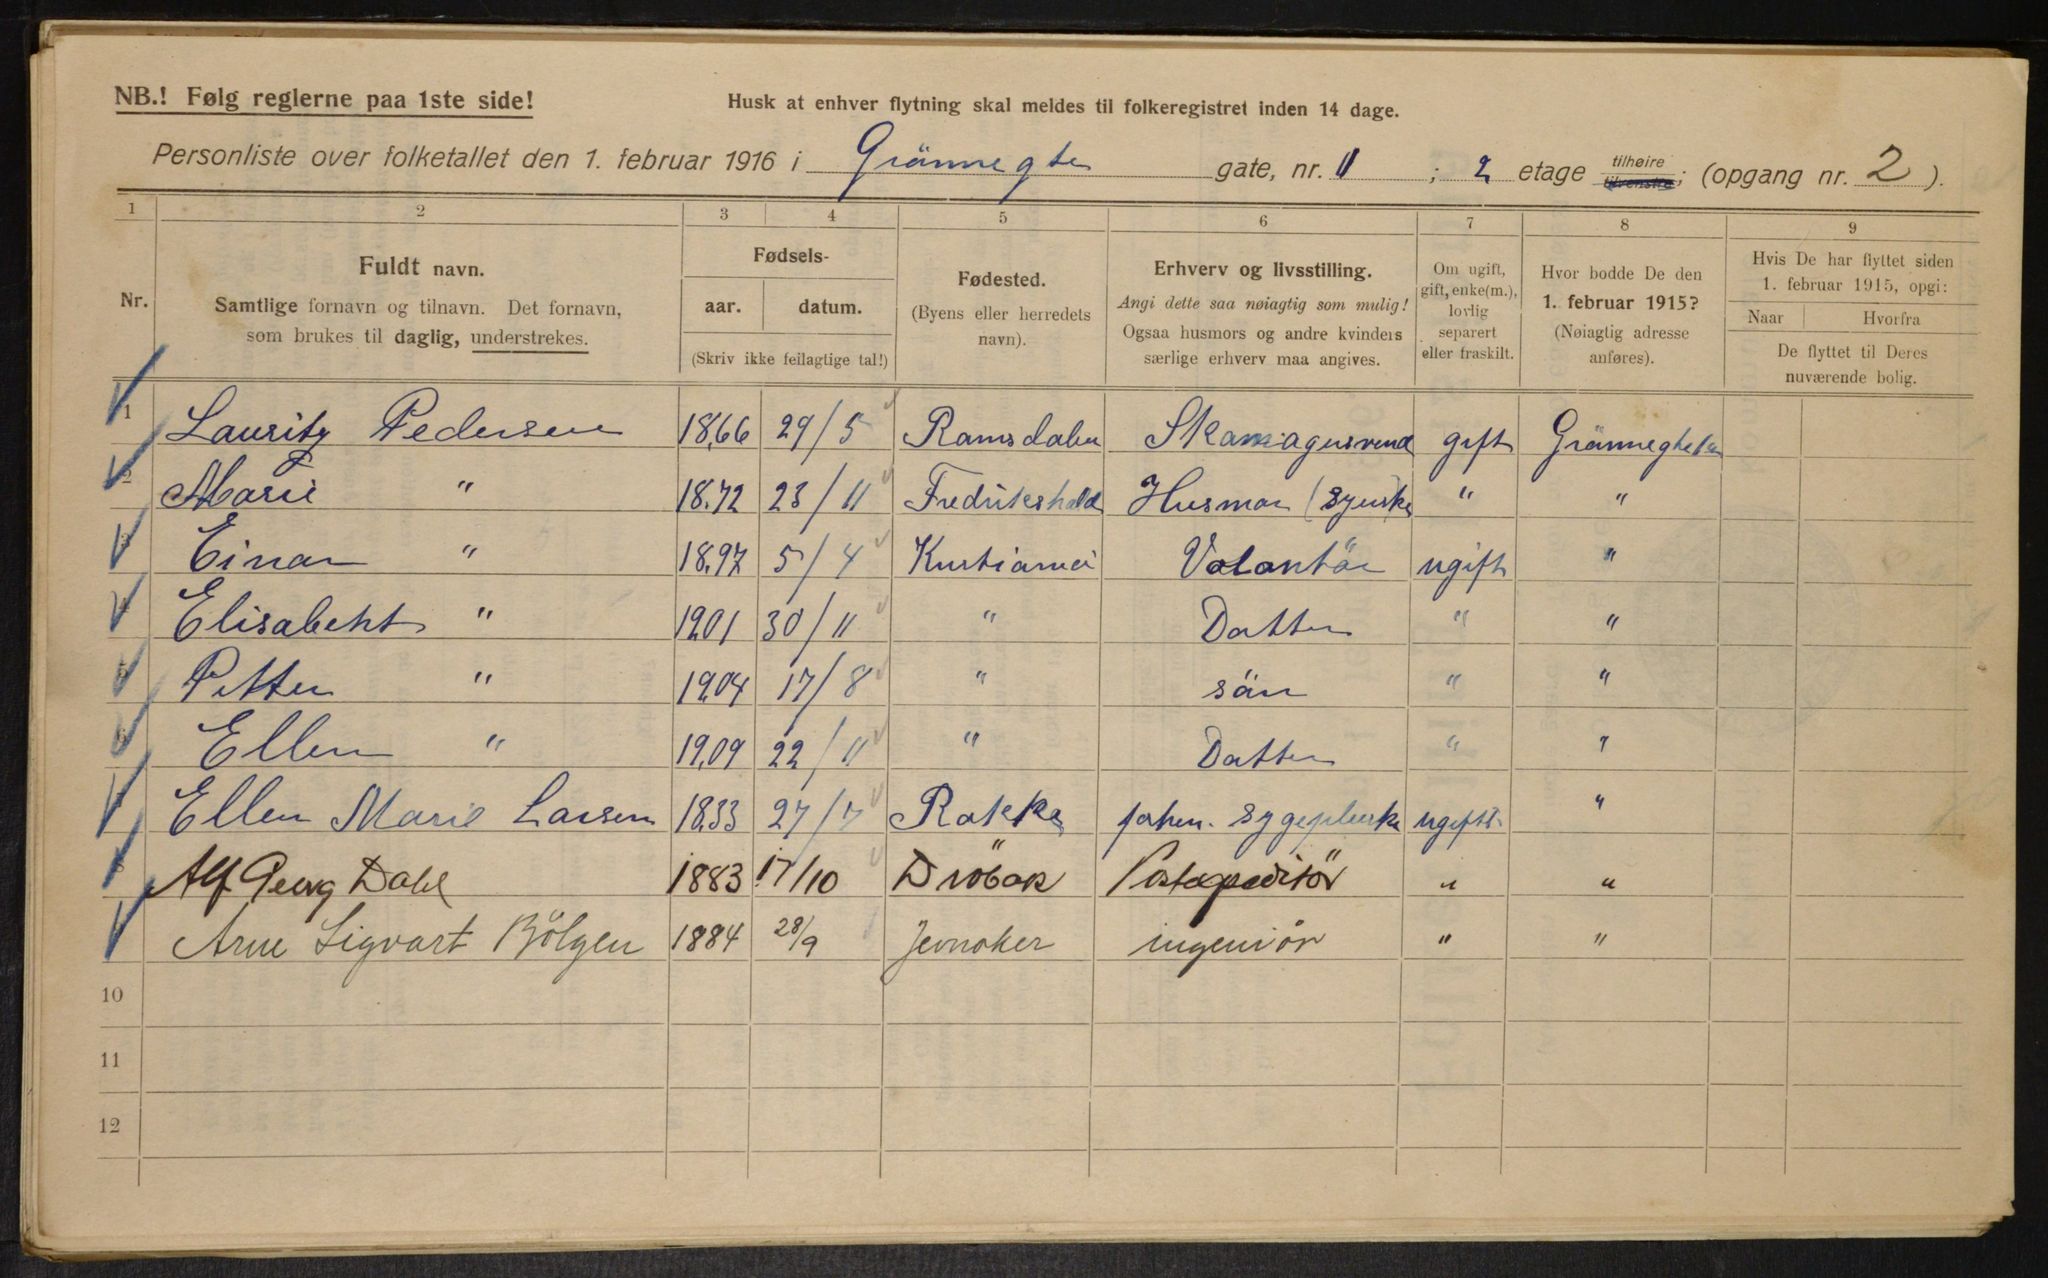 NB.! Følg reglerne paa 1ste side!
Husk at enhver flytning skal meldes til folkeregistret inden 14 dage.
Personliste over folketallet den 1. februar 1916 i Grönnegte gate, nr. 11 ; 2 etage tilhøire tilvenstre; (opgang nr. 2 ).
1 2 3 4 5 6 7 8 9
Nr.
Fuldt navn.
Samtlige fornavn og tilnavn. Det fornavn,
som brukes til daglig, understrekes.
Fødsels-
aar. datum.
(Skriv ikke feilagtige tal!)
Fødested.
(Byens eller herredets
navn).
Erhverv og livsstilling.
Angi dette saa nøiagtig som mulig!
Ogsaa husmors og andre kvinders
særlige erhverv maa angives.
Om ugift,
gift, enke(m.),
lovlig
separert
eller fraskilt.
Hvor bodde De den
1. februar 1915?
(Nøiagtig adresse
anføres).
Hvis De har flyttet siden
1. februar 1915, opgi:
Naar Hvorfra
De flyttet til Deres
nuværende bolig.
1 Lauritz Pedersen 1866 29/5 Ramsdalen gift
2 Marie " 1872 23/11 Fredrikshald Husmor " "
3 Einar " 1897 5/4 Kristiania Volontör ugift "
Elisabeht " 1901 30/11 " Datter " "
Petter " 1904 17/8 " sön " "
Ellen " 1909 22/11 " Datter " "
Ellen Marie Larsen 1833 27/7 Rokke ugift "
Alf Georg Dahl 1883 17/10 Dröbak Postexpeditör " "
Arne Sigvart Bölgen 1884 28/9 Jevnaker ingeniör " "
10
11
12